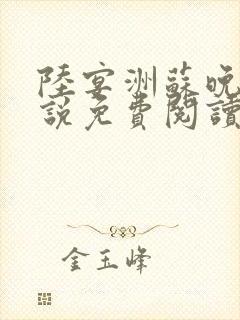 陸宴洲蘇晚
說免費閱讀
金玉峰